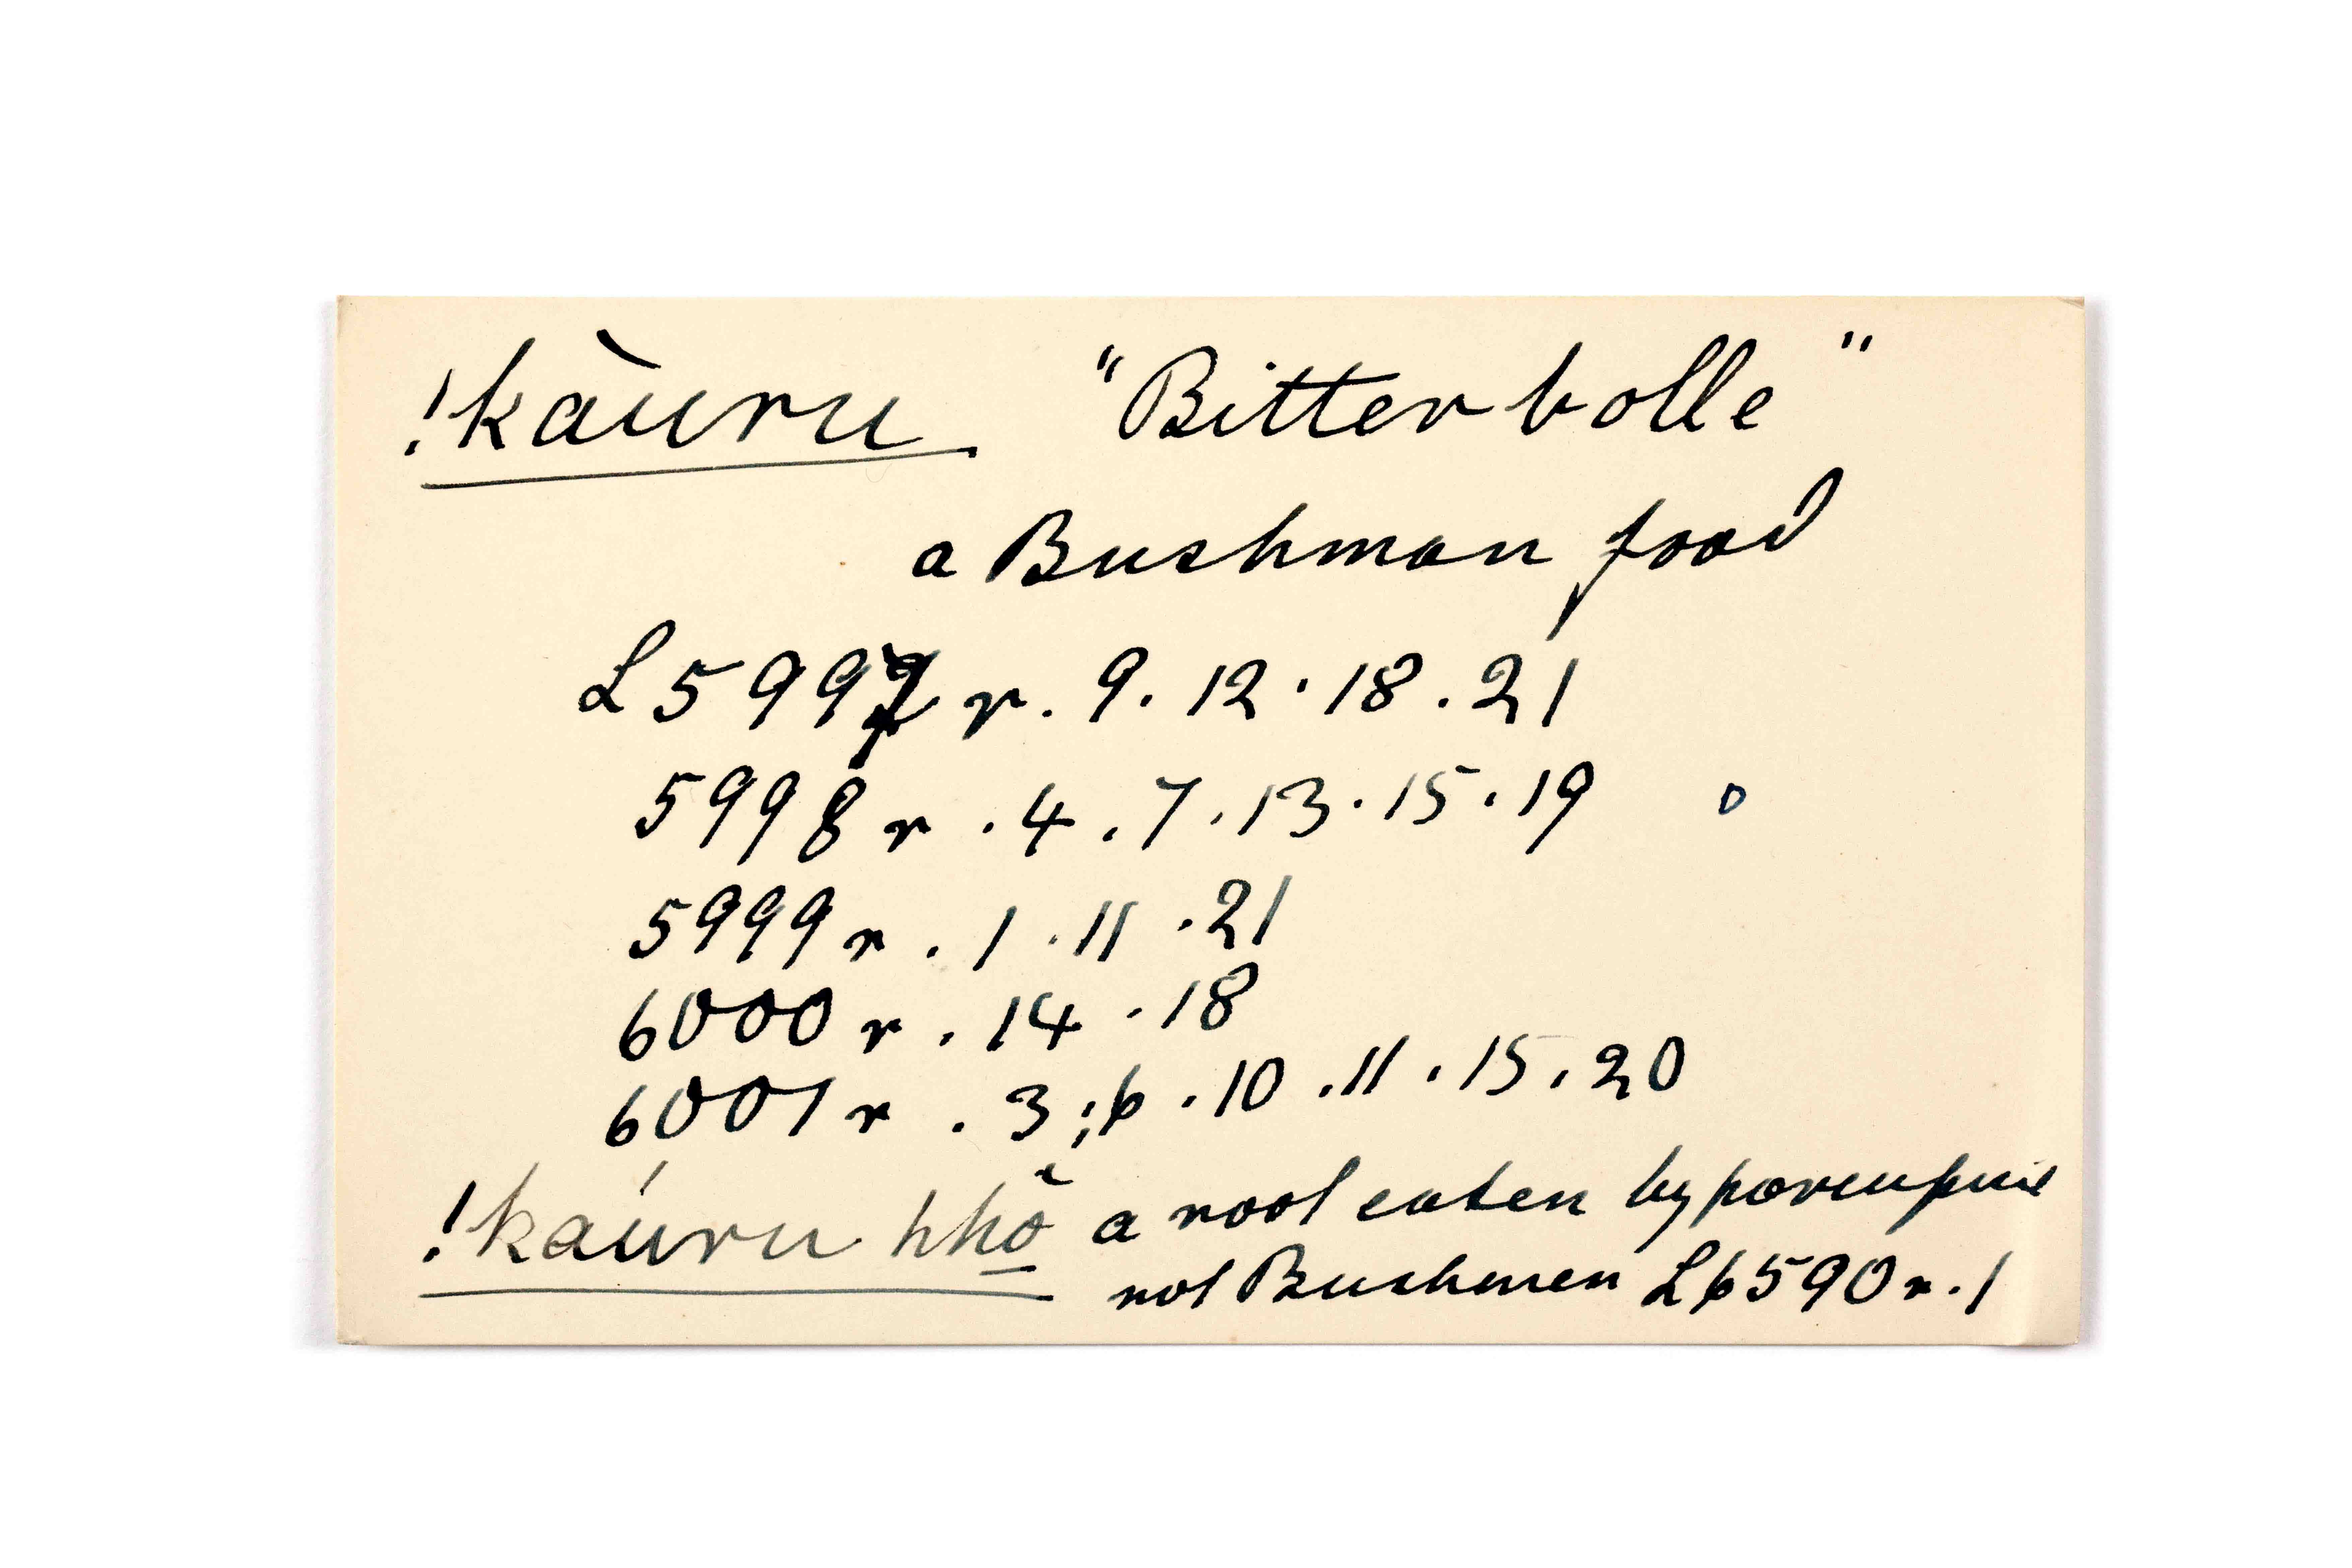 !kàuru "Bitterbolle"
a Bushman food
L 5997 r. 9. 12. 18. 21
5998 r. 4. 7. 13. 15. 19
5999 r. 1. 11. 21
6000 r. 14. 18
6001 r. 3; 6. 10. 11. 15. 20
!káuru a root eaten by porcupine
not Bushmen L 6590 r. 1